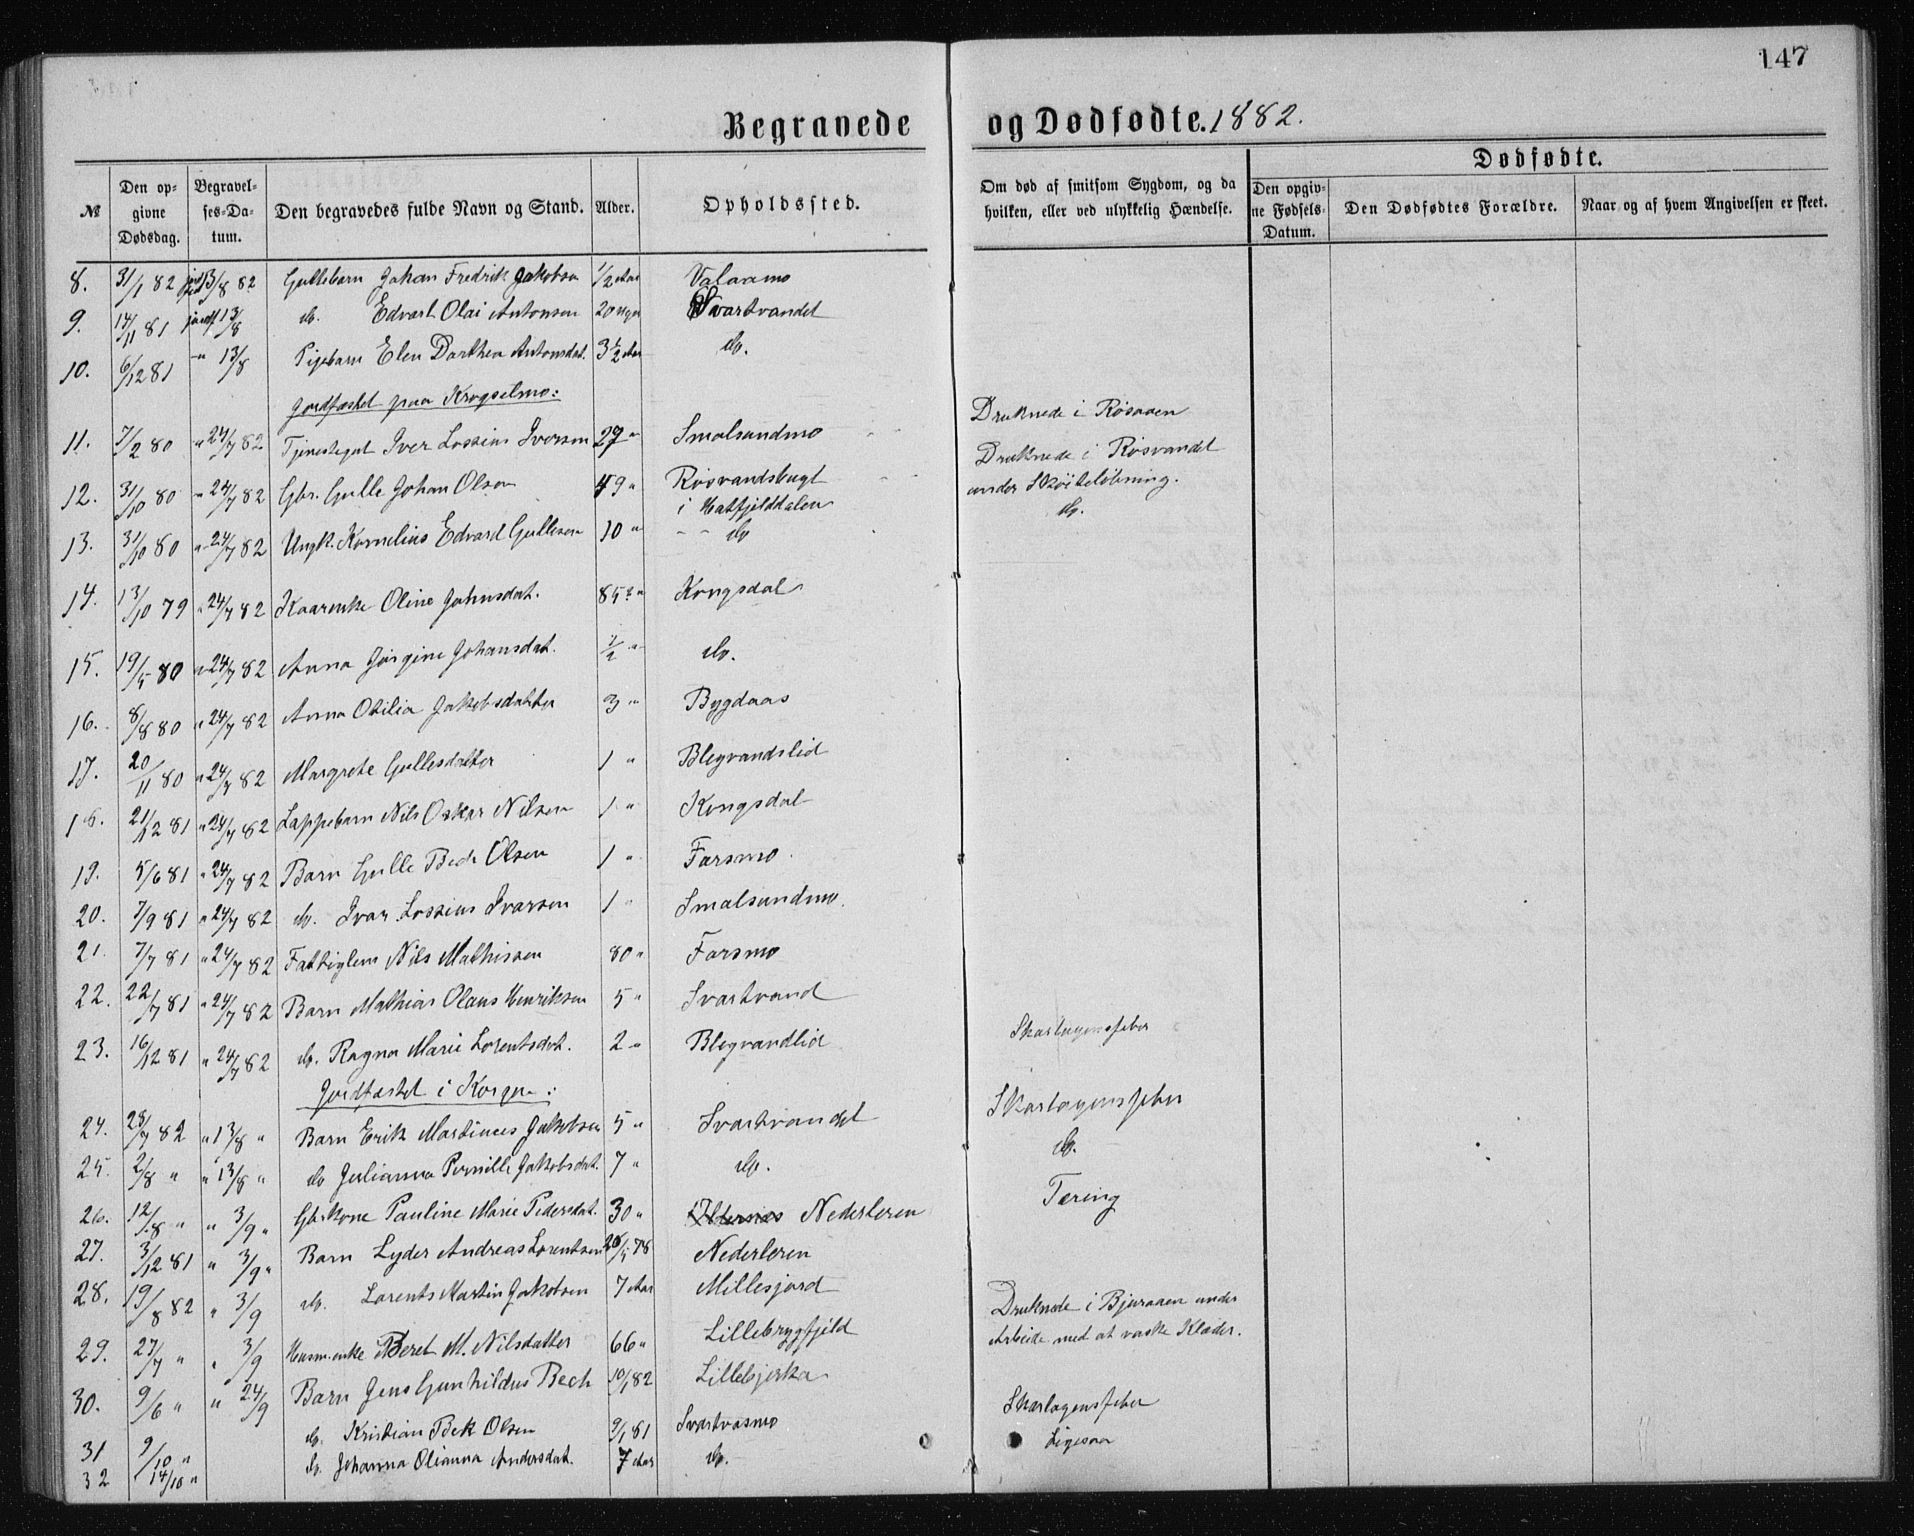 147
Begravede og Dødfødte. 1882.
Dødfødte.
№ Den opgivne Dødsdag. Begravelses-Datum. Den begravedes fulde Navn og Stand. Alder. Opholdssted. Om død af smitsom Sygdom, og da hvilken, eller ved ulykkelig Hændelse. Den opgivne Fødsels-Datum. Den Dødfødtes Forældre. Naar og af hvem Angivelsen er skeet.
8. 31/1 82 13/8 82 Guttebarn Johan Fredrik Jakobsen 1/2 Aar
9. 14/11 81 jordf 13/8 do. Edvart Olai Antonsen 20 Svartvandet
10. 6/12 81 " 13/8 Pigebarn Elen Dorthea Antonsdat. 3 1/2 Aar do.
Jordfæstet paa Krogselmo:
11. 7/2 80 " 24/7 82 Tjenestegut Iver Lossius Iversen 27 " Smalsundmo Druknede i Røsaaen
12. 31/10 80 " 24/7 82 Gbr. Gulle Johan Olsen 49 " Røsvandsbugt i Hatfjelddalen Druknede i Røsvandet under Skøiteløbning.
13. 31/10 80 " 24/7 82 Ungk. Kornelius Edvard Gullesen 10 " do do.
14. 13/10 79 " 24/7 82 Kaarenke Oline Johnsdat. 85? " Kongsdal
15. 19/5 80 " 24/7 82 Anna Jørgine Johansdat. 1/2 " do.
16. 8/8 80 " 24/7 82 Anna Otilia Jakobsdatter 3 " Bygdaas
17. 20/11 80 " 24/7 82 Margrete Gullesdatter 1 " Blegvandslid
18. 21/12 81 " 24/7 82 Lappebarn Nils Oskar Nilsen 1 " Kongsdal
19. 5/6 81 " 24/7 82 Barn Gulle Bech Olsen 1 " Farsmo
20. 7/9 81 " 24/7 82 do. Ivar Lossius Ivarsen 1 " Smalsundmo.
21. 7/7 81 " 24/7 82 Fattiglem Nils Mathissen 80 " Farsmo
22. 22/7 81 " 24/7 82 Barn Mathias Olaus Henriksen 5 " Svartvand
23. 16/12 81 " 24/7 82 do. Ragna Marie Lorentsdat. 2 " Blegvandlid Skarlagensfeber
Jordfæstet i Korgen:
24. 28/7 82 " 13/8 " Barn Erik Martinces Jakobsen 5 " Svartvandet Skarlagensfeber
25. 2/8 " " 13/8 " do Julianna Pernille Jakobsdat. 7 " do. do.
26. 12/8 " " 3/9 " Gbrkone Pauline Marie Pedersdat. 30 " Nederleren Tæring
27. 3/12 81 " 3/9 " Barn Lyder Andreas Lorentsen 28/5 78 Nederleren
28. 19/8 82 " 3/9 do. Lorents Martin Jakobsen 7 Aar Millesjord
29. 27/7 " " 3/9 Husm.enke Beret M. Nilsdatter 66 " Lillebrygfjeld Druknede i Bjuraaen under Arbeide med at vaske Klæder.
30. 9/6 " " 24/9 Barn Jens Gunhildus Bech 10/1 82 Lillebjerka
31 9/10 " do. Kristian Bek Olsen 9/1 81 Svartvasmo Skarlagensfeber
32 14/10 " do. Johanna Olianna Andersdat. 7 Aar do. Ligesaa